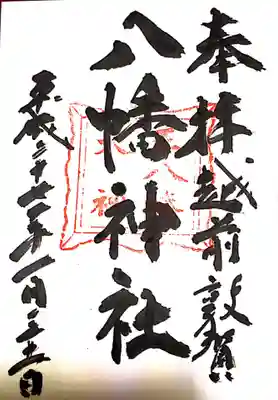 奉拝 越前敦賀
八幡神社
平成三十一年一月二十五日